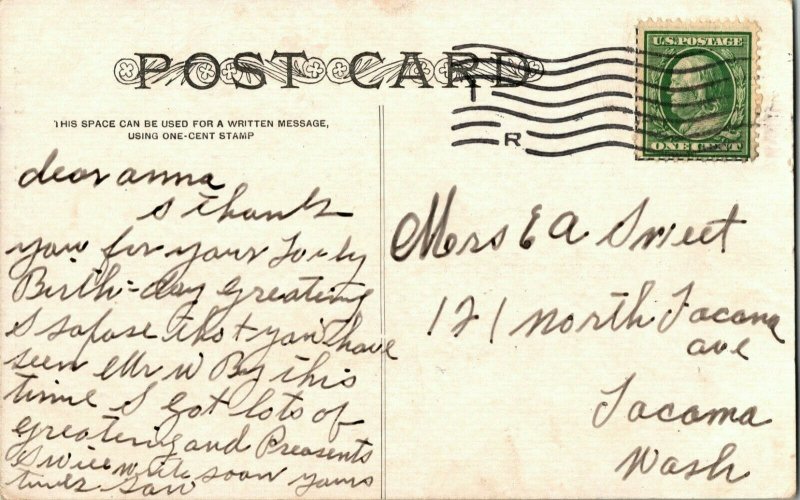 POST CARD
U.S. POSTAGE
ONE CENT
T
R
THIS SPACE CAN BE USED FOR A WRITTEN MESSAGE,
USING ONE-CENT STAMP
dear anna
I thank
you for your Lovly
Birth-day greating
I sopose that you have
seen Mr W By this
time I got lots of
greating and Preasents
write soon yours
Mrs E A Sweet
121 North Tacoma
ave
Tacoma
Wash